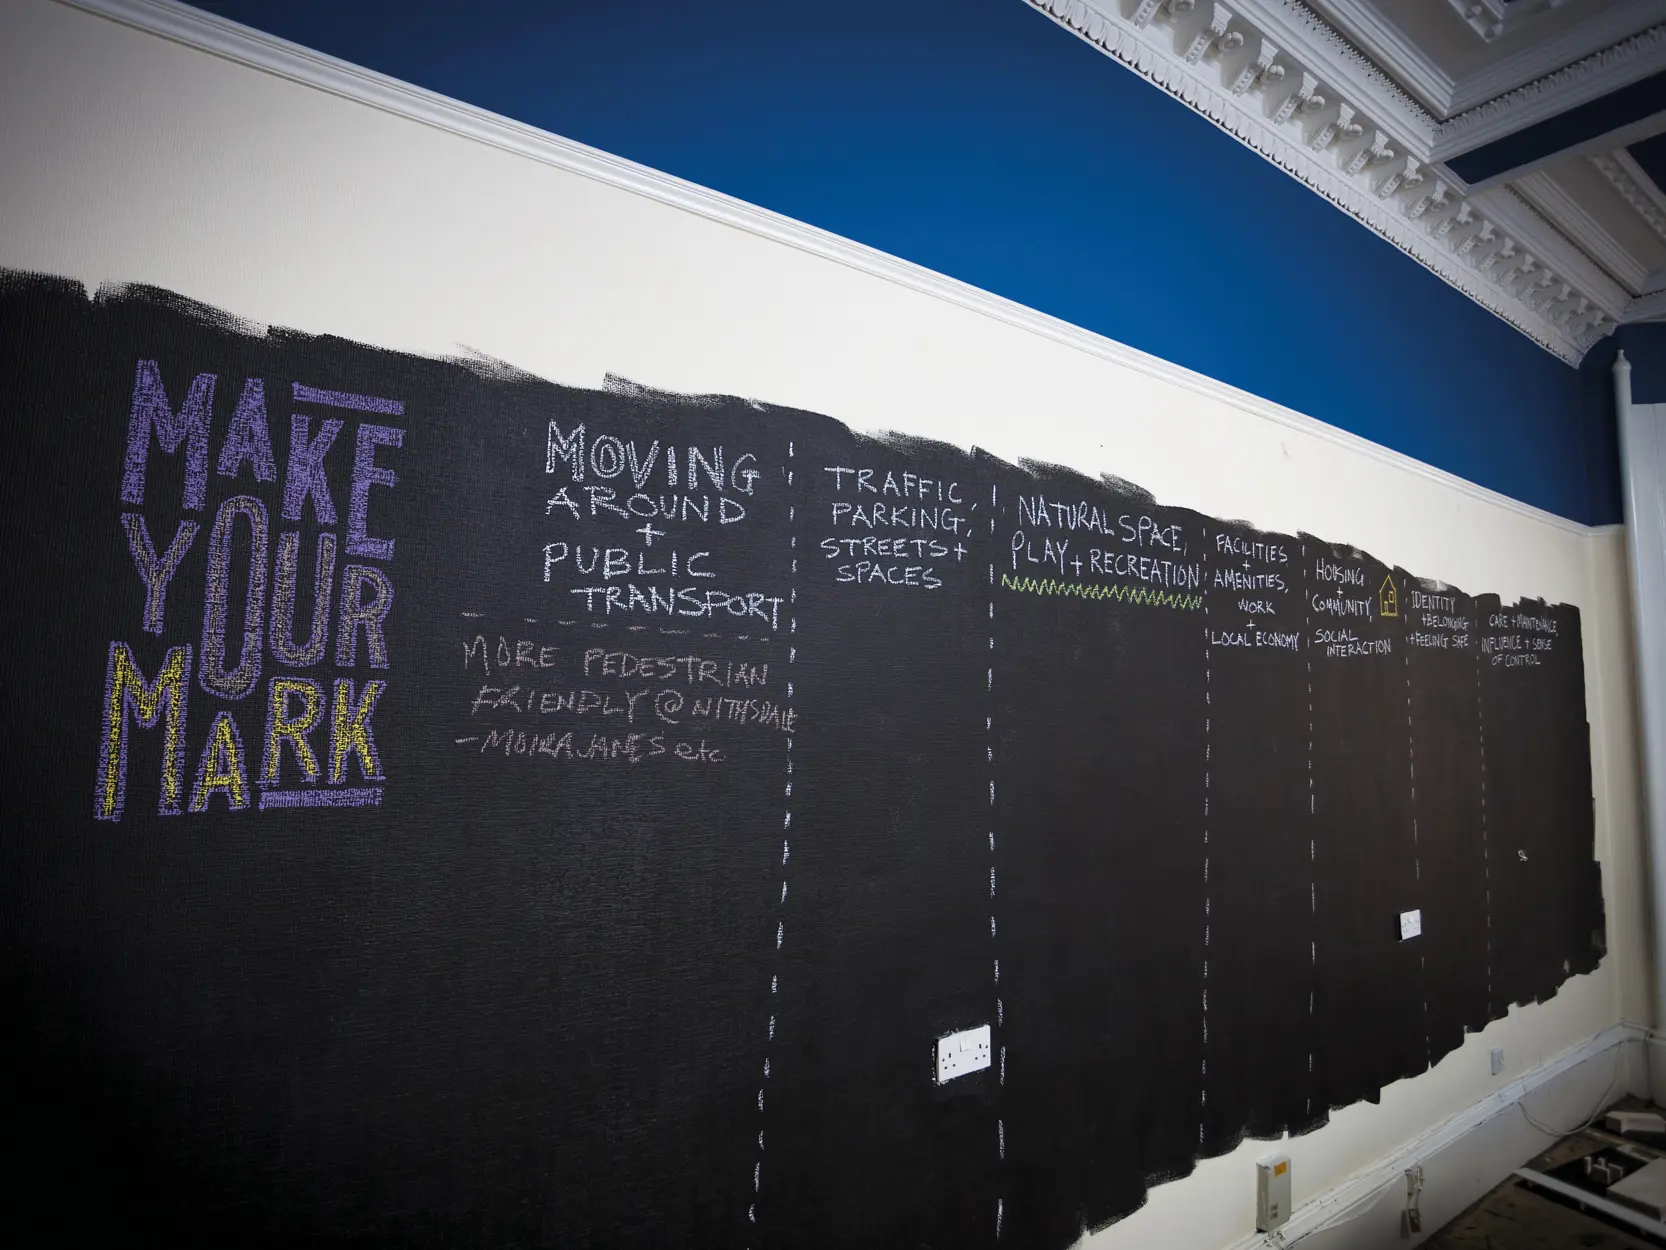 MAKE
YOUR
MARK
MOVING
AROUND
+
PUBLIC
TRANSPORT
MORE PEDESTRIAN
FRIENDLY @ NITHSDALE
TRAFFIC,
PARKING,
STREETS +
SPACES
NATURAL SPACE,
PLAY + RECREATION
FACILITIES
+
AMENITIES,
WORK
+
LOCAL ECONOMY
HOUSING
+
COMMUNITY,
SOCIAL
INTERACTION
IDENTITY
+ BELONGING
+ FEELING SAFE
CARE + MAINTENANCE,
INFLUENCE + SENSE
OF CONTROL